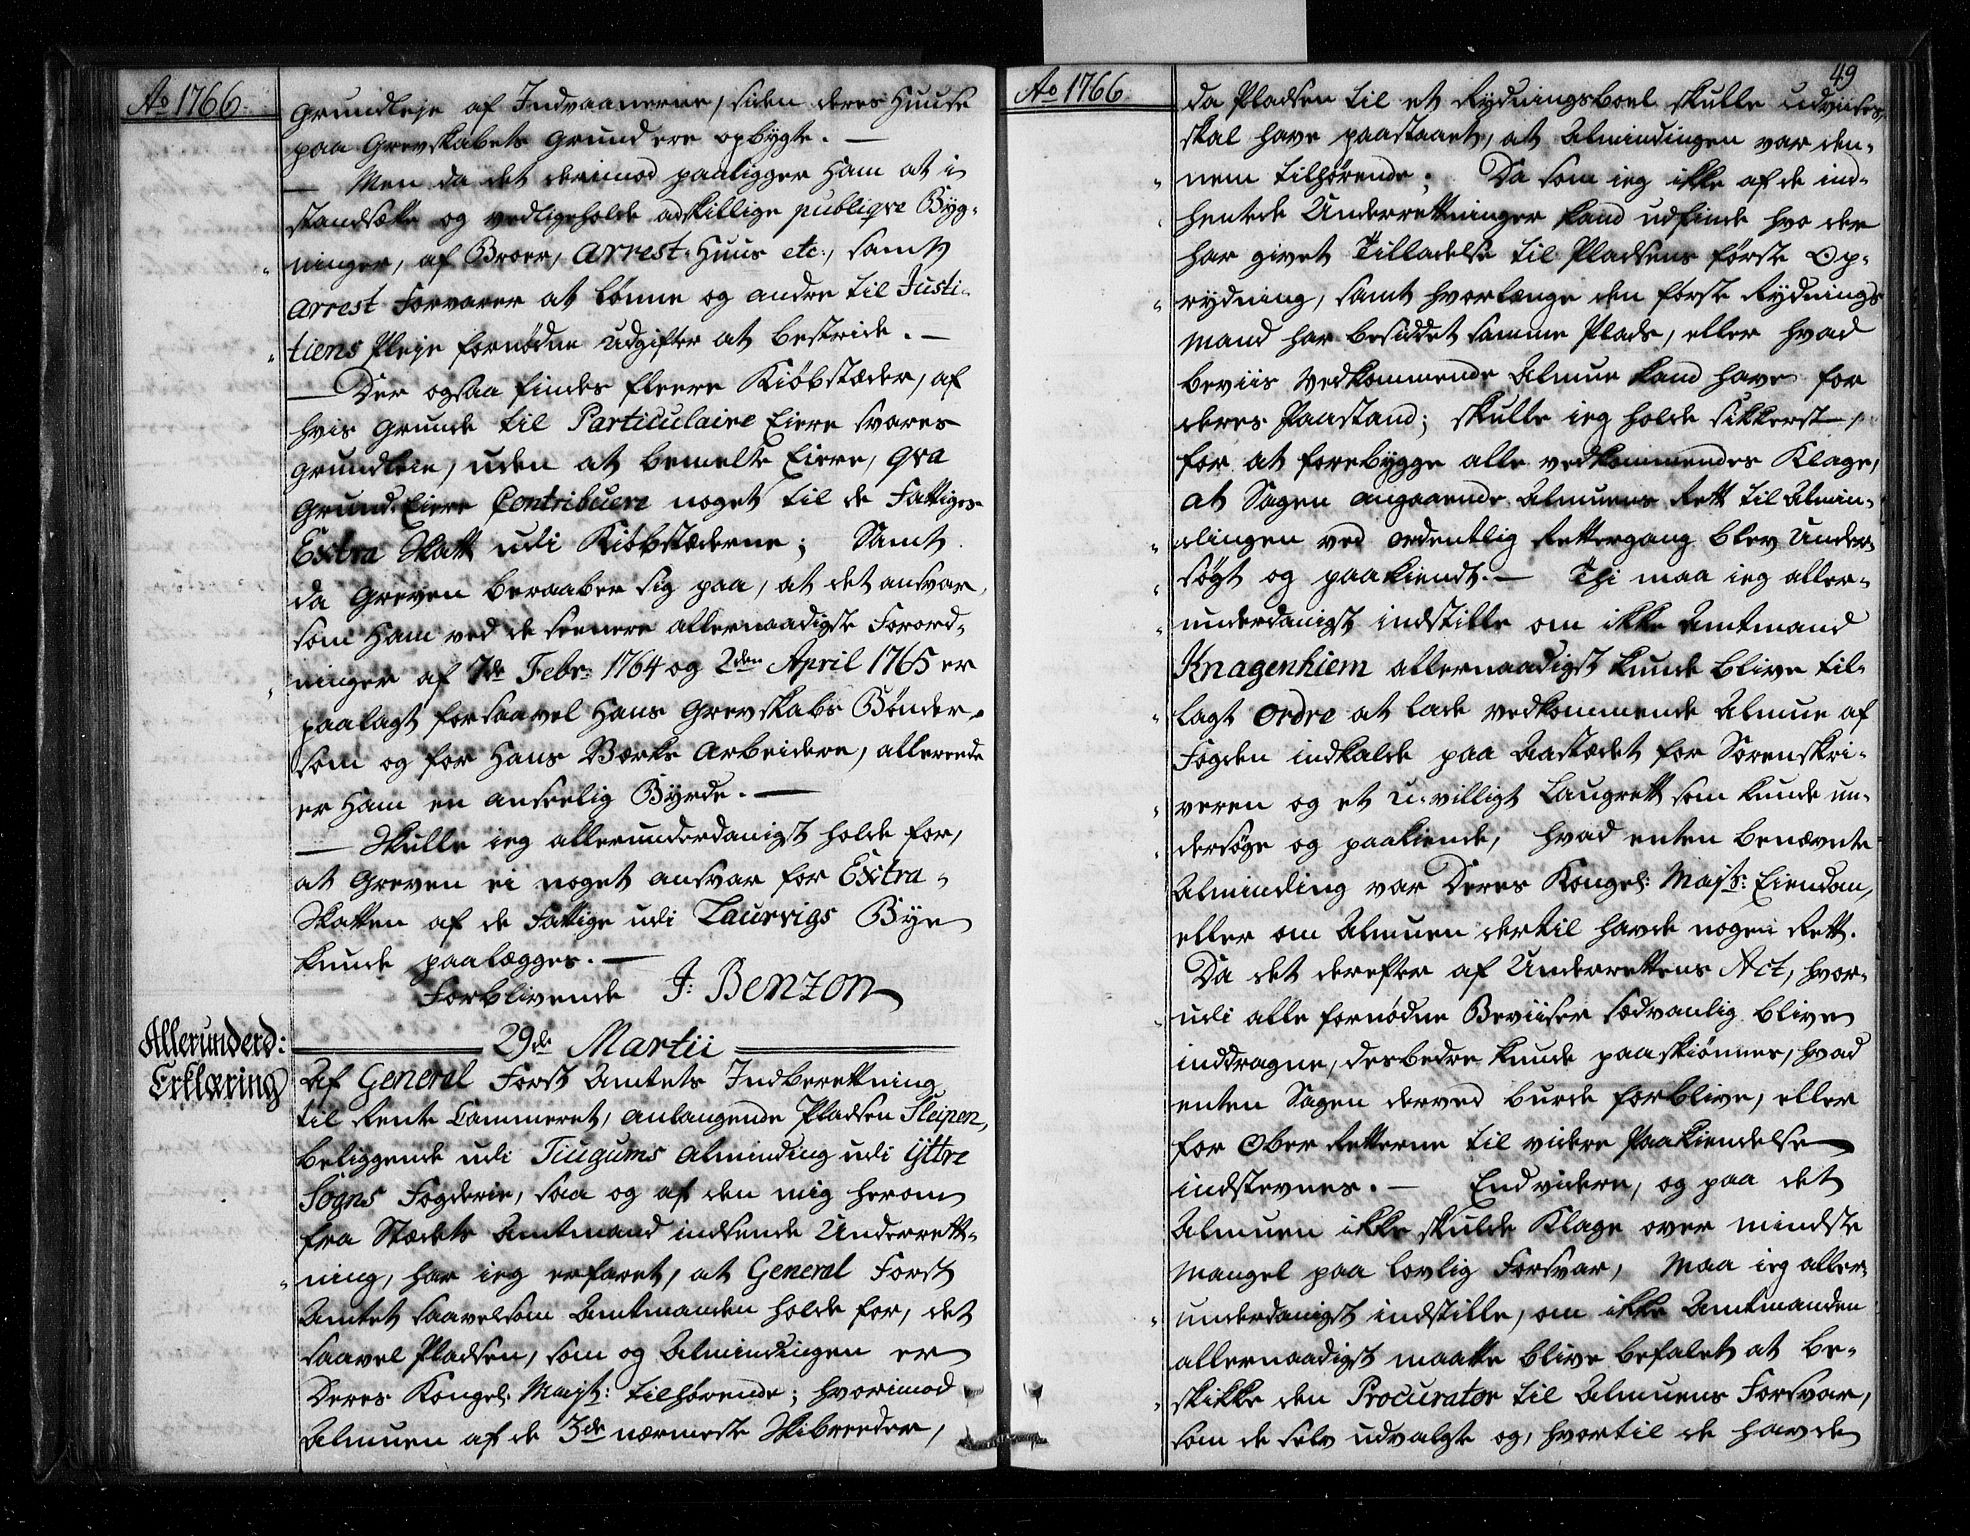 Ao 1766.
grundleje af Indvaanerne, siden deres Huuse
paa Grevskabets Grund ere opbygte. —
— Men da det derimod paaligger Ham at i
standsætte og vedligeholde adskillige publiqve Byg-
ninger, af Broer, Arrest-Huus etc:, samt
Arrest Forvarer at lønne og andre til Justi-
tiens Pleje fornødne Udgifter at bestride. —
— Der ogsaa findes fleere Kiøbstæder, af
hvis Grunde til Particulaire Eiere svares
Grundleie, uden at bemelte Eiere, qva
Grund-Eiere Contribuere noget til de Fattiges
Extra Skatt udi Kiøbstæderne; Samt
da Greven beraaber sig paa, at det ansvar,
som Ham ved de seenere allernaadigste Forord-
ninger af 7de Febr: 1764 og 2den April 1765 er
paalagt for saavel Hans Grevskabs Bønder,
som og for Hans Værks Arbeidere, allereede
er Ham en anseelig Byrde. —
— Skulle ieg allerunderdanigst holde for,
at Greven ei noget ansvar for Extra-
Skatten af de Fattige udi Laurvigs Bye
kunde paalægges. —
Forblivende J: Benzon
29de Martii
Allerunderd:
Erklæring
Af General Forst Amtets Indberettning
til Rente Cammeret, anlangende Pladsen Sleipen,
beliggende udi Tiugums Alminding udi Ÿttre
Sogns Fogderie, saa og af den mig herom
fra Stædets Amtmand indsende Underrett-
ning, har ieg erfaret, at General Forst
Amtet saavelsom Amtmanden holde for, det
saavel Pladsen, som og Almindingen er
Deres Kongel: Mayt: tilhørende; hvorimod
Almuen af de 3de nærmeste Skibreeder,
Ao 1766
49
da Pladsen til et Rydningsboel skulle udviises,
skal have paastaaet, at Almindingen var den-
nem tilhørende; Da som ieg ikke af de ind-
hentede Underrettninger kand udfinde hvo der
har givet Tilladelse til Pladsens første Op-
rydning, samt hvorlænge den første Rydnings
Mand har besiddet samme Plads, eller hvad
Beviis Vedkommende Almue kand have for
deres Paastand; skulle ieg holde sikkerst,
for at forebygge alle vedkommendes Klage,
at Sagen angaaende Almuens Rett til Almin-
dingen ved ordentlig Rettergang blev Under-
søgt og paakiendt. — Thi maa ieg aller-
underdanigst indstille om ikke Amtmand
Knagenhiem allernaadigst kunde blive til-
lagt Ordre at lade vedkommende Almue af
Fogden indkalde paa Aastædet for Sorenskri-
veren og et u-villigt Laugrett som kunde un-
dersøge og paakiende, hvad enten benævnte
Alminding var Deres Kongel: Majts: Eiendom,
eller om Almuen dertil havde nogen Rett.
Da det derefter af Underrettens Act, hvor-
udi alle fornødne Beviiser sædvanlig blive
inddragne, desbedre kunde paaskiønnes, hvad
enten Sagen derved burde forblive, eller
for Ober Retterne til videre Paakiendelse
indstevnes. — Endvidere, og paa det
Almuen ikke skulde Klage over mindste
Mangel paa lovlig Forsvar, Maa ieg aller-
underdanigst indstille, om ikke Amtmanden
allernaadigst maatte blive befalet at be-
skikke den Procurator til Almuens Forsvar,
som de selv udvalgte og, hvortil de havde